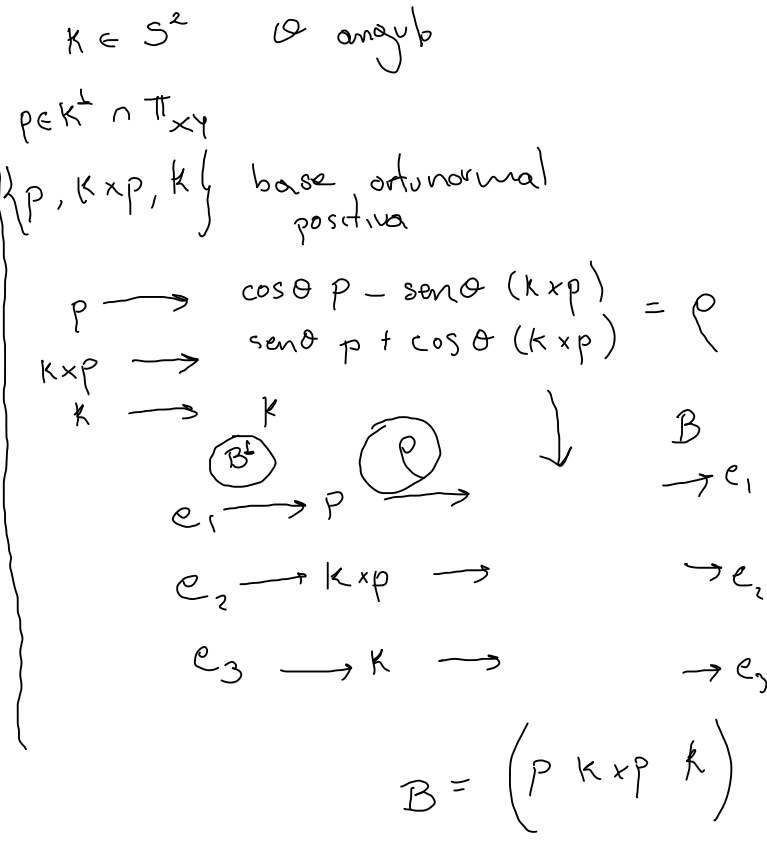 K ∈ S² θ angulo
p∈K^⊥ ∩ π_XY
{p, K×p, K} base ortonormal
positiva
p → cosθ p − senθ (K×p)
K×p → senθ p + cosθ (K×p) = ρ
K → K
B^t ρ ↓ B
e₁ → p → → e₁
e₂ → K×p → → e₂
e₃ → K → → e₃
B = (p K×p K)